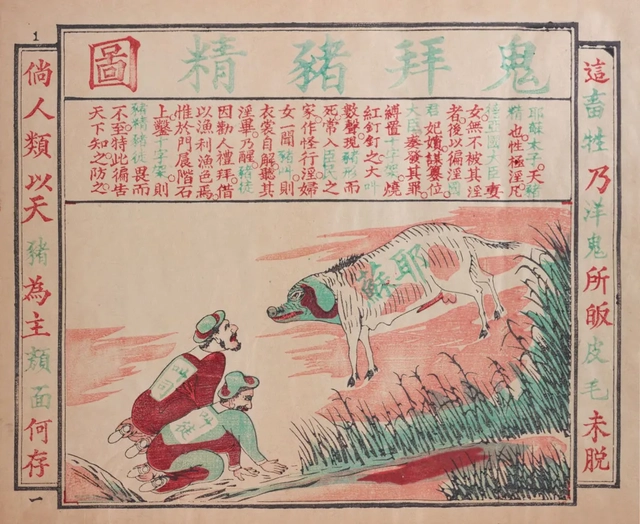 1
鬼拜豬精圖
這畜牲乃洋鬼所皈皮毛未脫
耶蘇太子。天豬
精也。性極淫。凡
德亞國大臣妻
女。無不被其淫
者。後以徧淫國
君妃嬪謀篡位。
大臣奏發其罪。
縛置十字架。燒
紅釘釘之。大叫
數聲。現豬形而
死。常入臣民之
家。作怪行淫。婦
女一聞豬叫。則
衣裳自解。聽其
淫畢乃醒。豬徒
因勸人禮拜。借
以漁利漁色焉。
惟於門晨階石
上。鑿十字架。則
豬精豬徒畏而
不至。特此徧告
天下。知之防之。
倘人類以天豬為主顏面何存
耶蘇
叫司
叫徒
一